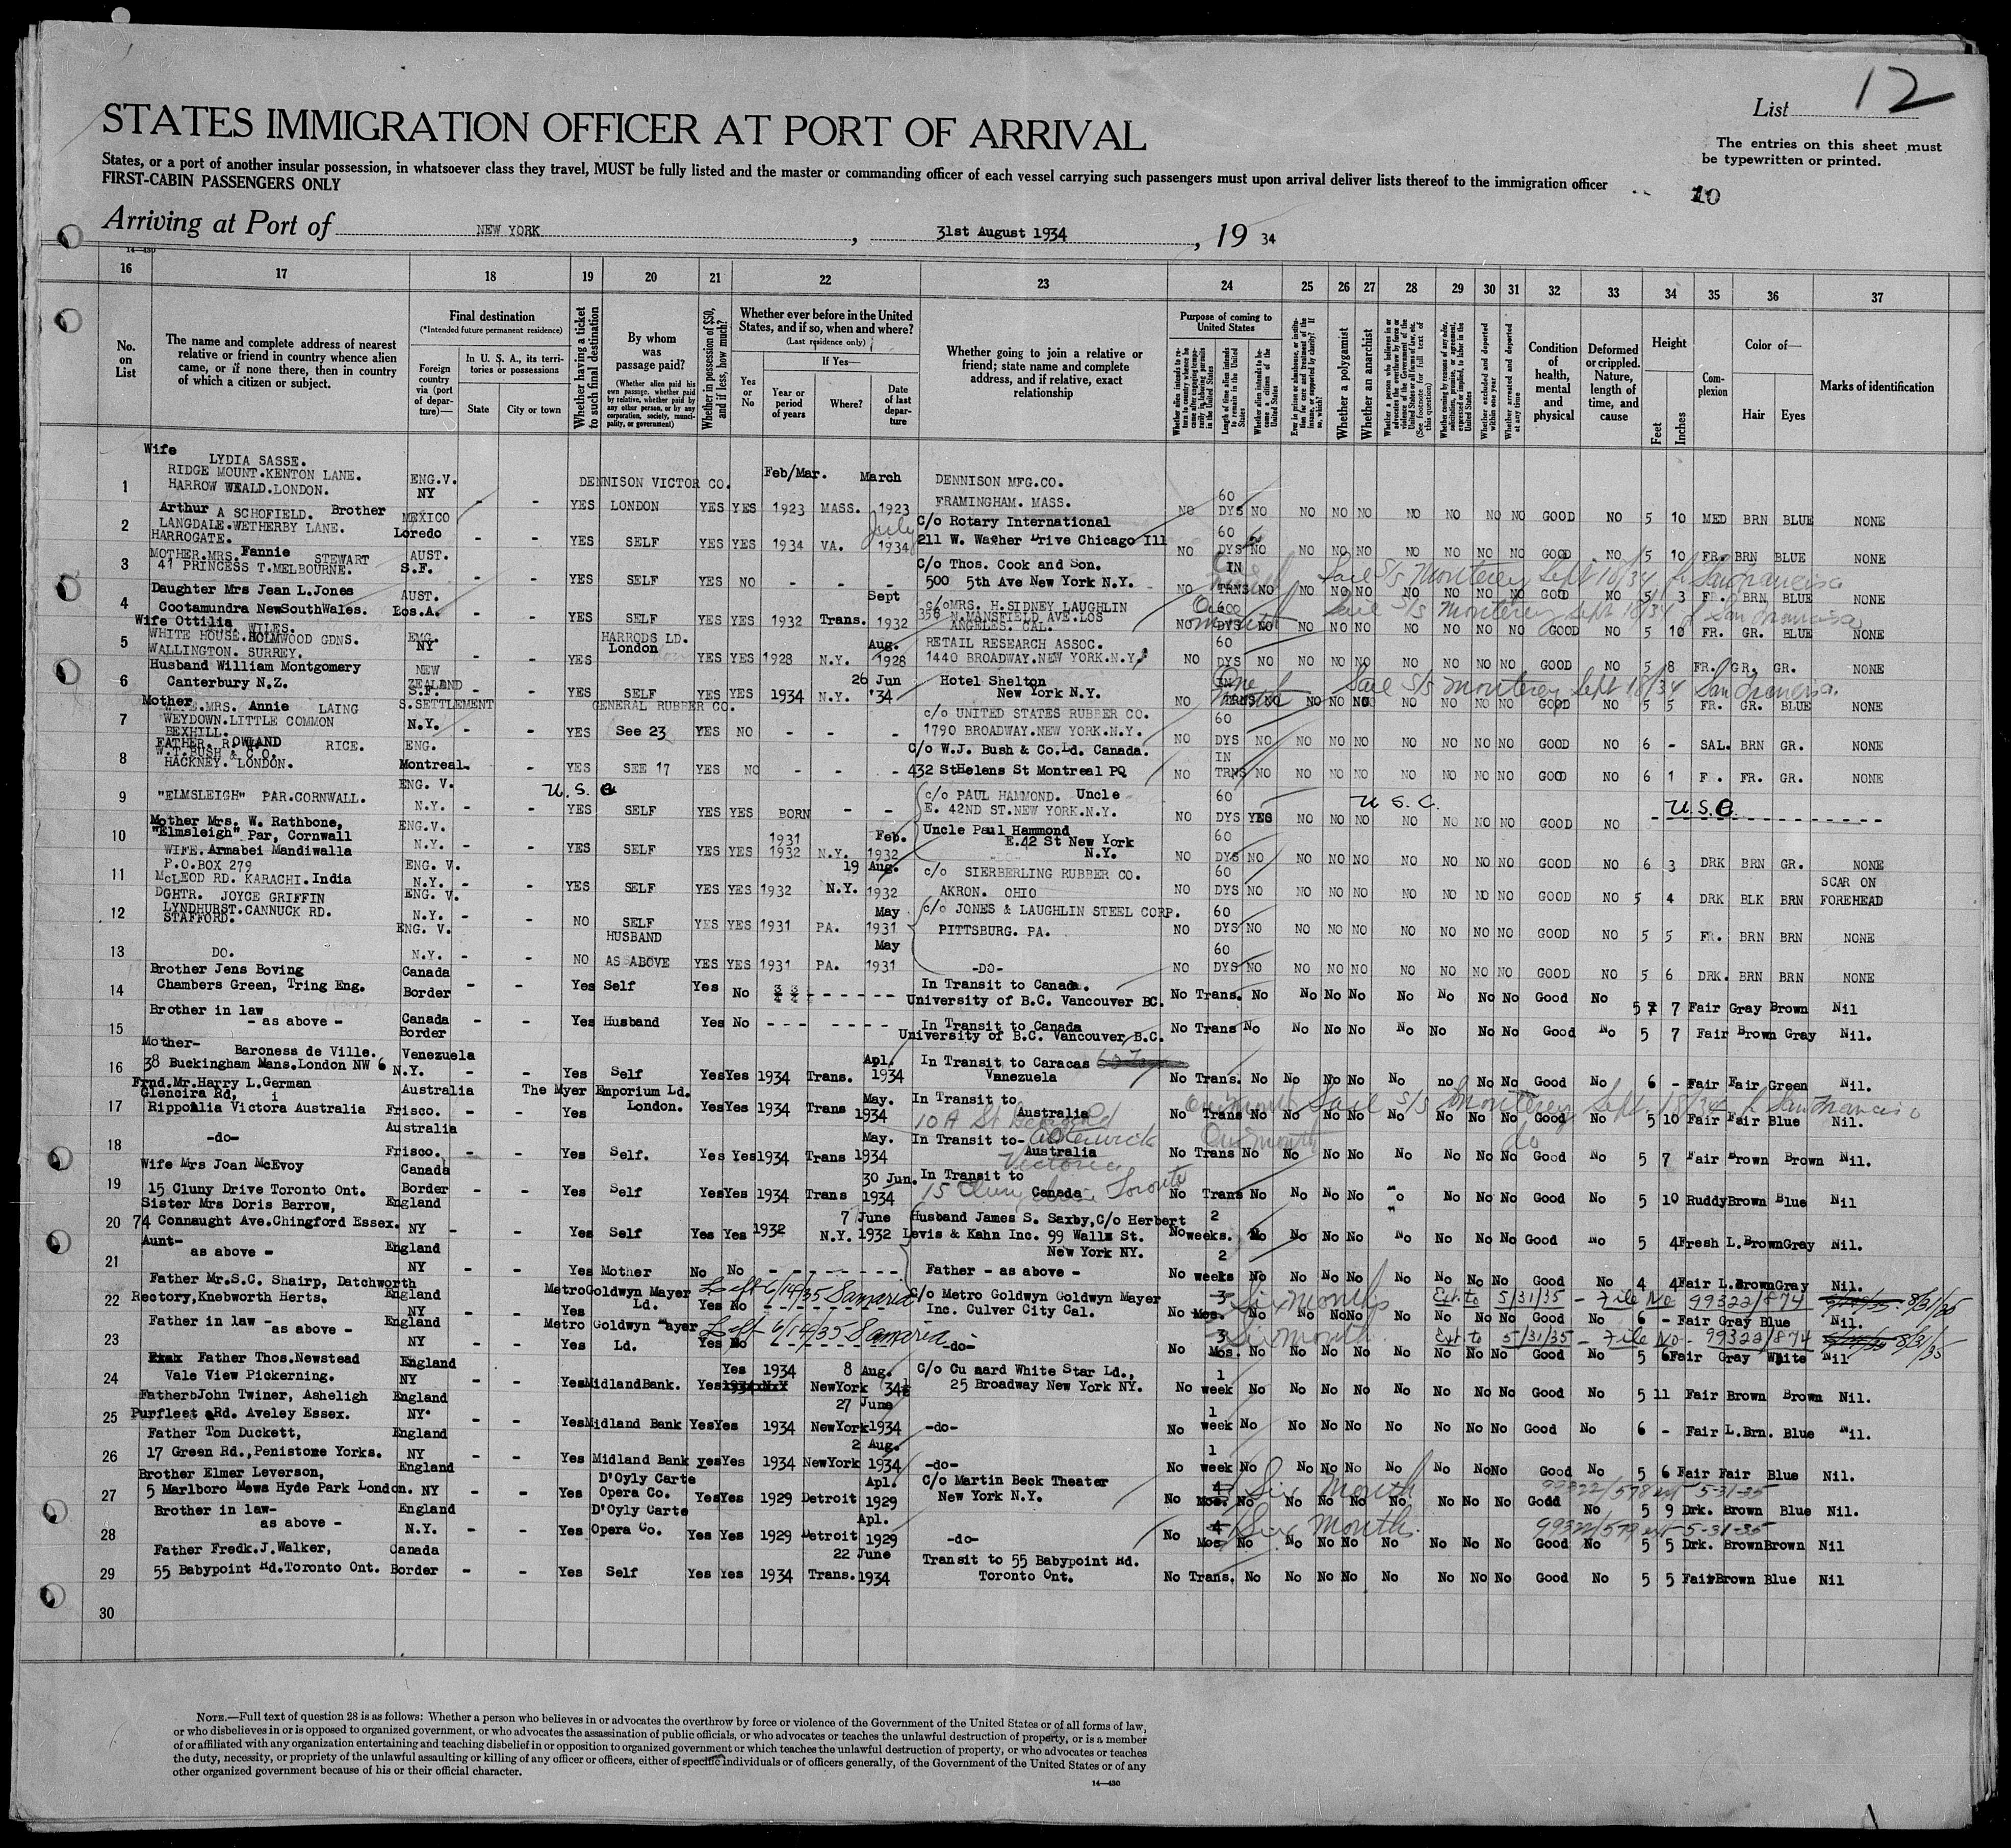 12
List
STATES IMMIGRATION OFFICER AT PORT OF ARRIVAL
The entries on this sheet must
be typewritten or printed.
States, or a port of another insular possession, in whatsoever class they travel, MUST be fully listed and the master or commanding officer of each vessel carrying such passengers must upon arrival deliver lists thereof to the immigration officer
FIRST-CABIN PASSENGERS ONLY
10
Arriving at Port of NEW YORK, 31st August 1934, 19 34
14-430
16 17 18 19 20 21 22 23 24 25 26 27 28 29 30 31 32 33 34 35 36 37
No. on List
The name and complete address of nearest relative or friend in country whence alien came, or if none there, then in country of which a citizen or subject.
Final destination
(*Intended future permanent residence)
Foreign country via (port of departure)—
In U. S. A., its territories or possessions
State
City or town
Whether having a ticket to such final destination
By whom was passage paid?
(Whether alien paid his own passage, whether paid by relative, whether paid by any other person, or by any corporation, society, municipality, or government)
Whether in possession of $50, and if less, how much?
Whether ever before in the United States, and if so, when and where?
(Last residence only)
Yes or No
If Yes—
Year or period of years
Where?
Date of last departure
Whether going to join a relative or friend; state name and complete address, and if relative, exact relationship
Purpose of coming to United States
Length of time alien intends to remain in the United States
Whether alien intends to become a citizen of the United States
Whether a polygamist
Whether an anarchist
Whether excluded and deported within one year
Whether arrested and deported at any time
Condition of health, mental and physical
Deformed or crippled. Nature, length of time, and cause
Height
Feet
Inches
Complexion
Color of—
Hair
Eyes
Marks of identification
Wife
LYDIA SASSE.
RIDGE MOUNT.KENTON LANE. ENG.V. DENNISON VICTOR CO. Feb/Mar. March DENNISON MFG.CO.
1 HARROW WEALD.LONDON. NY - - YES LONDON YES YES 1923 MASS. 1923 FRAMINGHAM. MASS. NO 60 DYS NO NO NO NO NO NO NO NO GOOD NO 5 10 MED BRN BLUE NONE
Arthur A SCHOFIELD. Brother MEXICO July C/o Rotary International
2 LANGDALE.WETHERBY LANE. Loredo - - YES SELF YES YES 1934 VA. 1934 211 W. Wacher Drive Chicago Ill NO 60 DYS NO NO NO NO NO NO NO NO GOOD NO 5 10 FR. BRN BLUE NONE
HARROGATE.
MOTHER.MRS. Fannie STEWART AUST. C/o Thos. Cook and Son.
3 41 PRINCES T.MELBOURNE. S.F. - - YES SELF YES NO - - - 500 5th Ave New York N.Y. NO IN TRNS NO NO NO NO NO NO NO NO GOOD NO 5 3 F. BRN BLUE NONE
Sail S/S Monterey Sept 18/34 fr San Francisco
Daughter Mrs Jean L.Jones AUST. Sept c/o MRS. H.SIDNEY LAUGHLIN
4 Cootamundra NewSouthWales. Los.A. - - YES SELF YES YES 1932 Trans. 1932 356 N.MANSFIELD AVE.LOS ANGELES. CAL. NO 60 DYS NO NO NO NO NO NO NO NO GOOD NO 5 10 FR. GR. BLUE NONE
One month Sail S/S Monterey Sept 18/34 fr San Francisco
Wife Ottilia WILES. HARRODS LD. Aug. RETAIL RESEARCH ASSOC.
5 WHITE HOUSE.HOLMWOOD GDNS. ENG. NY - - YES London YES YES 1928 N.Y. 1928 1440 BROADWAY.NEW YORK.N.Y. NO 60 DYS NO NO NO NO NO NO NO NO GOOD NO 5 8 FR. GR. GR. NONE
WALLINGTON. SURREY.
Husband William Montgomery NEW ZEALAND 26 Jun Hotel Shelton
6 Canterbury N.Z. S.F. - - YES SELF YES YES 1934 N.Y. '34 New York N.Y. NO TRNS NO NO NO NO NO NO NO NO GOOD NO 5 5 FR. GR. BLUE NONE
One month Sail S/S Monterey Sept 18/34 San Francisco.
Mother MRS. Annie LAING S.SETTLEMENT GENERAL RUBBER CO. c/o UNITED STATES RUBBER CO.
7 WEYDOWN.LITTLE COMMON N.Y. - - YES See 23 YES NO - - - 1790 BROADWAY.NEW YORK.N.Y. NO 60 DYS NO NO NO NO NO NO NO NO GOOD NO 6 - SAL. BRN GR. NONE
BEXHILL.
FATHER. ROWLAND RICE. ENG. C/o W.J. Bush & Co.Ld. Canada.
8 W.T.BUSH & C O. HACKNEY. LONDON. Montreal - - YES SEE 17 YES NO - - - 432 StHelens St Montreal PQ NO IN TRNS NO NO NO NO NO NO NO NO GOOD NO 6 1 F. FR. GR. NONE
ENG. V. U.S.C. c/o PAUL HAMMOND. Uncle U S C. U.S.C.
9 "ELMSLEIGH" PAR.CORNWALL. N.Y. - - YES SELF YES YES BORN - - E. 42ND ST.NEW YORK.N.Y. NO 60 DYS YES NO NO NO NO NO NO NO GOOD NO
Mother Mrs. W. Rathbone, ENG.V. 1931 Feb. Uncle Paul Hammond
10 "Elmsleigh" Par, Cornwall N.Y. - - YES SELF YES YES 1932 N.Y. 1932 E.42 St New York N.Y. NO 60 DYS NO NO NO NO NO NO NO NO GOOD NO 6 3 DRK BRN GR. NONE
WIFE. Armabei Mandiwalla
P.O.BOX 279 ENG. V. 19 Aug. c/o SIERBERLING RUBBER CO. SCAR ON
11 McLEOD RD. KARACHI. India N.Y. - - YES SELF YES YES 1932 N.Y. 1932 AKRON. OHIO NO 60 DYS NO NO NO NO NO NO NO NO GOOD NO 5 4 DRK BLK BRN FOREHEAD
DGHTR. JOYCE GRIFFIN ENG. V. May c/o JONES & LAUGHLIN STEEL CORP.
12 LYNDHURST.CANNUCK RD. STAFFORD. N.Y. - - NO SELF YES YES 1931 PA. 1931 PITTSBURG. PA. NO 60 DYS NO NO NO NO NO NO NO NO GOOD NO 5 5 FR. BRN BRN NONE
ENG. V. HUSBAND May
13 DO. N.Y. - - NO AS ABOVE YES YES 1931 PA. 1931 -DO- NO 60 DYS NO NO NO NO NO NO NO NO GOOD NO 5 6 DRK. BRN BRN NONE
Brother Jens Boving Canada In Transit to Canada.
14 Chambers Green, Tring Eng. Border - - Yes Self Yes No - - - University of B.C. Vancouver BC. No Trans. No No No No No No No No Good No 5 7 Fair Gray Brown Nil
Brother in law Canada In Transit to Canada
15 - as above - Border - - Yes Husband Yes No - - - University of B.C. Vancouver B.C. No Trans No No No No No No No No Good No 5 7 Fair Brown Gray Nil.
Mother- Baroness de Ville. Venezuela Apl. In Transit to Caracas
16 38 Buckingham Mans.London NW 6 N.Y. - - Yes Self Yes Yes 1934 Trans. 1934 Vanezuela No Trans. No No No No No no No No Good No 6 - Fair Fair Green Nil.
Frnd.Mr.Harry L.German Australia The Myer Emporium Ld. May. In Transit to
17 Glencira Rd, Ripponlia Victora Australia Frisco. - - Yes London. Yes Yes 1934 Trans 1934 Australia No Trans No No No No No No No No Good No 5 10 Fair Fair Blue Nil.
One month Sail S/S Monterey Sept 18/34 fr San Francisco
10 A St Georges Rd Elsternwick Victoria
Australia May. In Transit to-
18 -do- Frisco. - - Yes Self. Yes Yes 1934 Trans 1934 Australia No Trans No No No No No No No No Good No 5 7 Fair Brown Brown Nil.
One month do
Wife Mrs Joan McEvoy Canada 30 Jun. In Transit to
19 15 Cluny Drive Toronto Ont. Border - - Yes Self Yes Yes 1934 Trans 1934 Canada No Trans No No No No No No No No Good No 5 10 Ruddy Brown Blue Nil
15 Cluny Drive Toronto
Sister Mrs Doris Barrow, England 7 June Husband James S. Saxby, C/o Herbert
20 74 Connaught Ave.Chingford Essex. NY - - Yes Self Yes Yes 1932 N.Y. 1932 Levis & Kahn Inc. 99 Walls St. New York NY. No 2 weeks. No No No No No No No No Good No 5 4 Fresh L.Brown Gray Nil.
Aunt- England
21 as above - NY - - Yes Mother No No - - - Father - as above - No 2 weeks No No No No No No No No Good No 4 4 Fair L.Brown Gray Nil.
Father Mr.S.C. Shairp, Datchworth England Metro Goldwyn Mayer Left 6/14/35 Samaria C/o Metro Goldwyn Goldwyn Mayer Six months Ext. to 5/31/35 - File No 99322/874 8/31/35
22 Rectory,Knebworth Herts. NY - - Yes Ld. Yes No - - - Inc. Culver City Cal. No 3 Mos. No No No No No No No No Good No 6 - Fair Gray Blue Nil.
Father in law - England Metro Goldwyn Mayer Left 6/14/35 Samaria Six month Ext. to 5/31/35 - File No - 99322/874 8/31/35
23 as above - NY - - Yes Ld. Yes No - - - -do- No 3 Mos. No No No No No No No No Good No 5 6 Fair Gray White Nil
Father Thos.Newstead England Yes 1934 8 Aug. C/o Cu nard White Star Ld.,
24 Vale View Pickerning. NY - - Yes Midland Bank. Yes NewYork 34 25 Broadway New York NY. No 1 week No No No No No No No No Good No 5 11 Fair Brown Brown Nil.
Father John Twiner, Asheligh England 27 June
25 Purfleet Rd. Aveley Essex. NY - - Yes Midland Bank Yes Yes 1934 NewYork 1934 -do- No 1 week No No No No No No No No Good No 6 - Fair L.Brn. Blue Nil.
Father Tom Duckett, England 2 Aug.
26 17 Green Rd.,Penistone Yorks. NY - - Yes Midland Bank yes Yes 1934 NewYork 1934 -do- No 1 week No No No No No No No No Good No 5 6 Fair Fair Blue Nil.
Brother Elmer Leverson, England D'Oyly Carte Apl. C/o Martin Beck Theater Six Month 99322/578 ext 5-31-35
27 5 Marlboro Mews Hyde Park London. NY - - Yes Opera Co. Yes Yes 1929 Detroit 1929 New York N.Y. No 4 Mos. No No No No No No No No Good No 5 9 Drk. Brown Blue Nil.
Brother in law- England D'Oyly Carte Apl. Six Month. 99322/579 ext 5-31-35
28 as above - N.Y. - - Yes Opera Co. Yes Yes 1929 Detroit 1929 -do- No 4 Mos No No No No No No No No Good No 5 5 Drk. Brown Brown Nil
Father Fredk.J.Walker, Canada 22 June Transit to 55 Babypoint Rd.
29 55 Babypoint Rd.Toronto Ont. Border - - Yes Self Yes Yes 1934 Trans. 1934 Toronto Ont. No Trans. No No No No No No No No Good No 5 5 Fair Brown Blue Nil
30
NOTE.—Full text of question 28 is as follows: Whether a person who believes in or advocates the overthrow by force or violence of the Government of the United States or of all forms of law,
or who disbelieves in or is opposed to organized government, or who advocates the assassination of public officials, or who advocates or teaches the unlawful destruction of property, or is a member
of or affiliated with any organization entertaining and teaching disbelief in or opposition to organized government or which teaches the unlawful destruction of property, or who advocates or teaches
the duty, necessity, or propriety of the unlawful assaulting or killing of any officer or officers, either of specific individuals or of officers generally, of the Government of the United States or of any
other organized government because of his or their official character.
14—430